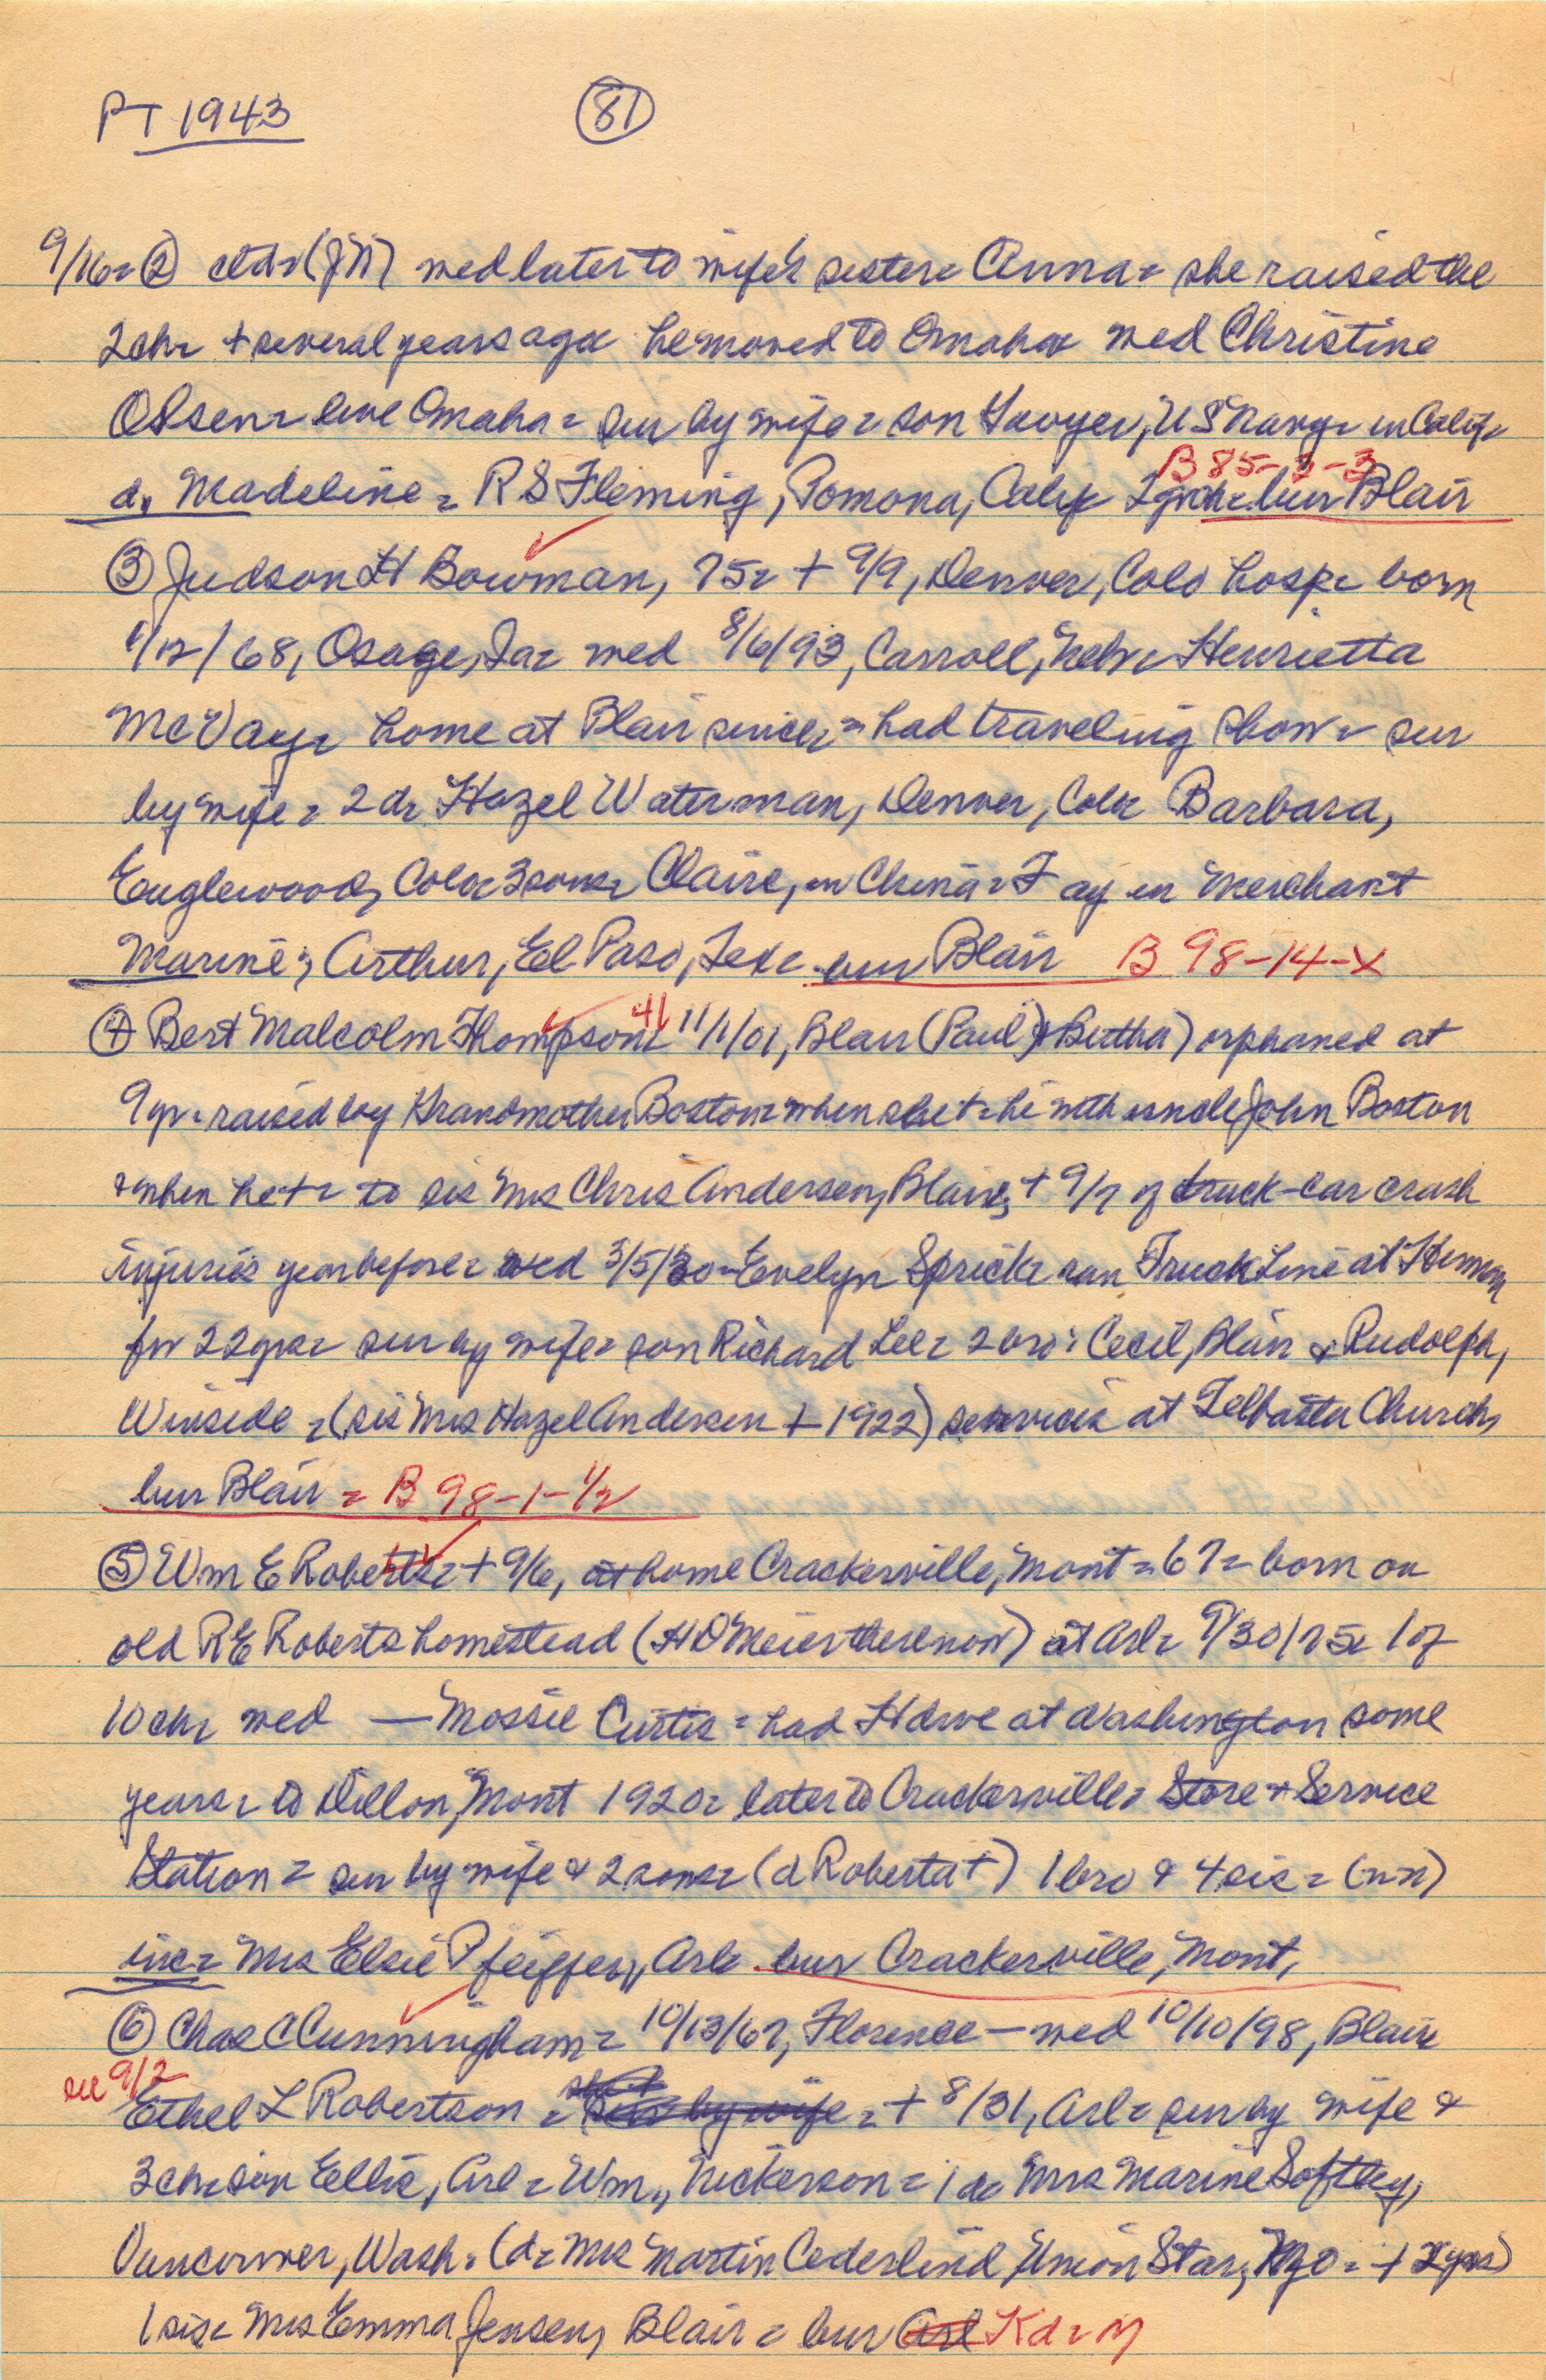 PT 1943
81
9/16 = ② ctd = (JN) med later to wife's sister = Anna = she raised the
2 ch = + several years ago = he moved to Omaha = med Christine
Olsen = live Omaha = sur by wife = son Sawyer, US Navy = in Calif =
B 85-3-3
d, Madeline = R S Fleming, Pomona, Calif 2 grch = bur Blair
③ Judson H Bowman, 75 = + 9/9, Denver, Colo hosp = born
1/12/68, Osage, Ia = med 8/6/93, Carroll, Neb = Henrietta
McVay = home at Blair since = had traveling show = sur
by wife = 2 d = Hazel Waterman, Denver, Colo = Barbara,
Englewood, Colo = 3 sons = Claire, in China = Fay in Merchant
Marine; Arthur, El Paso, Tex = bur Blair B 98-14-X
④ Bert Malcolm Thompson = 41 11/1/01, Blair (Paul & Bertha) orphaned at
9 yr = raised by Grandmother Boston = when she + = he with uncle John Boston
& when he + = to sis Mrs Chris Andersen, Blair; + 9/7 of truck-car crash
injuries year before = med 3/5/30 = Evelyn Sprick = ran Truck Line at Herman
for 22 yrs = sur by wife = son Richard Lee = 2 bro: Cecil, Blair & Rudolph,
Winside = (sis Mrs Hazel Andersen + 1922) services at Telbasta Church,
bur Blair = B 98-1-1/2
⑤ Wm E Roberts = + 9/6, at home Crackerville, Mont = 67 = born on
old RE Roberts homestead (H D Meier there now) at Arl = 9/30/75 = 1 of
10 ch = med — Mossie Curtis = had Hdwe at Washington some
years = to Dillon, Mont 1920 = later to Crackerville = Store + Service
Station = sur by wife & 2 sons = (d Roberta +) 1 bro & 4 sis = (nn)
inc = Mrs Elsie Pfeiffer, Arl = bur Crackerville, Mont,
⑥ Chas C Cunningham = 10/13/67, Florence — med 10/10/98, Blair
see 9/2
Ethel L Robertson = sur by wife = + 8/31, Arl = sur by wife &
3 ch = son Ellis, Arl = Wm., Nickerson = 1 d = Mrs Marine Softley,
Vancouver, Wash = (d = Mrs Martin Cederlind, Union Star, Mo = + 2 yrs)
1 sis = Mrs Emma Jensen, Blair = bur Arl Kd =